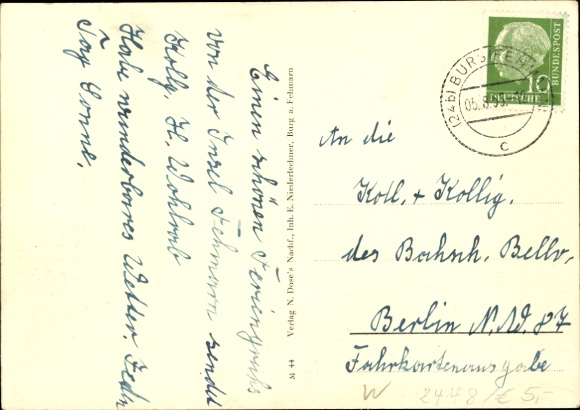 Einen schönen Feriengruß
von der Insel Fehmarn sendet
Kollg. H. Wohlrab
Habe wunderbares Wetter. Jeden
Tag Sonne.
M 44 Verlag N. Dose's Nachf., Inh. E. Niederlechner, Burg a. Fehmarn
10
DEUTSCHE
BUNDESPOST
(24b) BURG (FEHMARN)
05.8.59
c
An die
Koll. + Kollig.
des Bahnh. Bellv.
Berlin N.W. 87
Fahrkartenausgabe
W 2448/€ 5,-